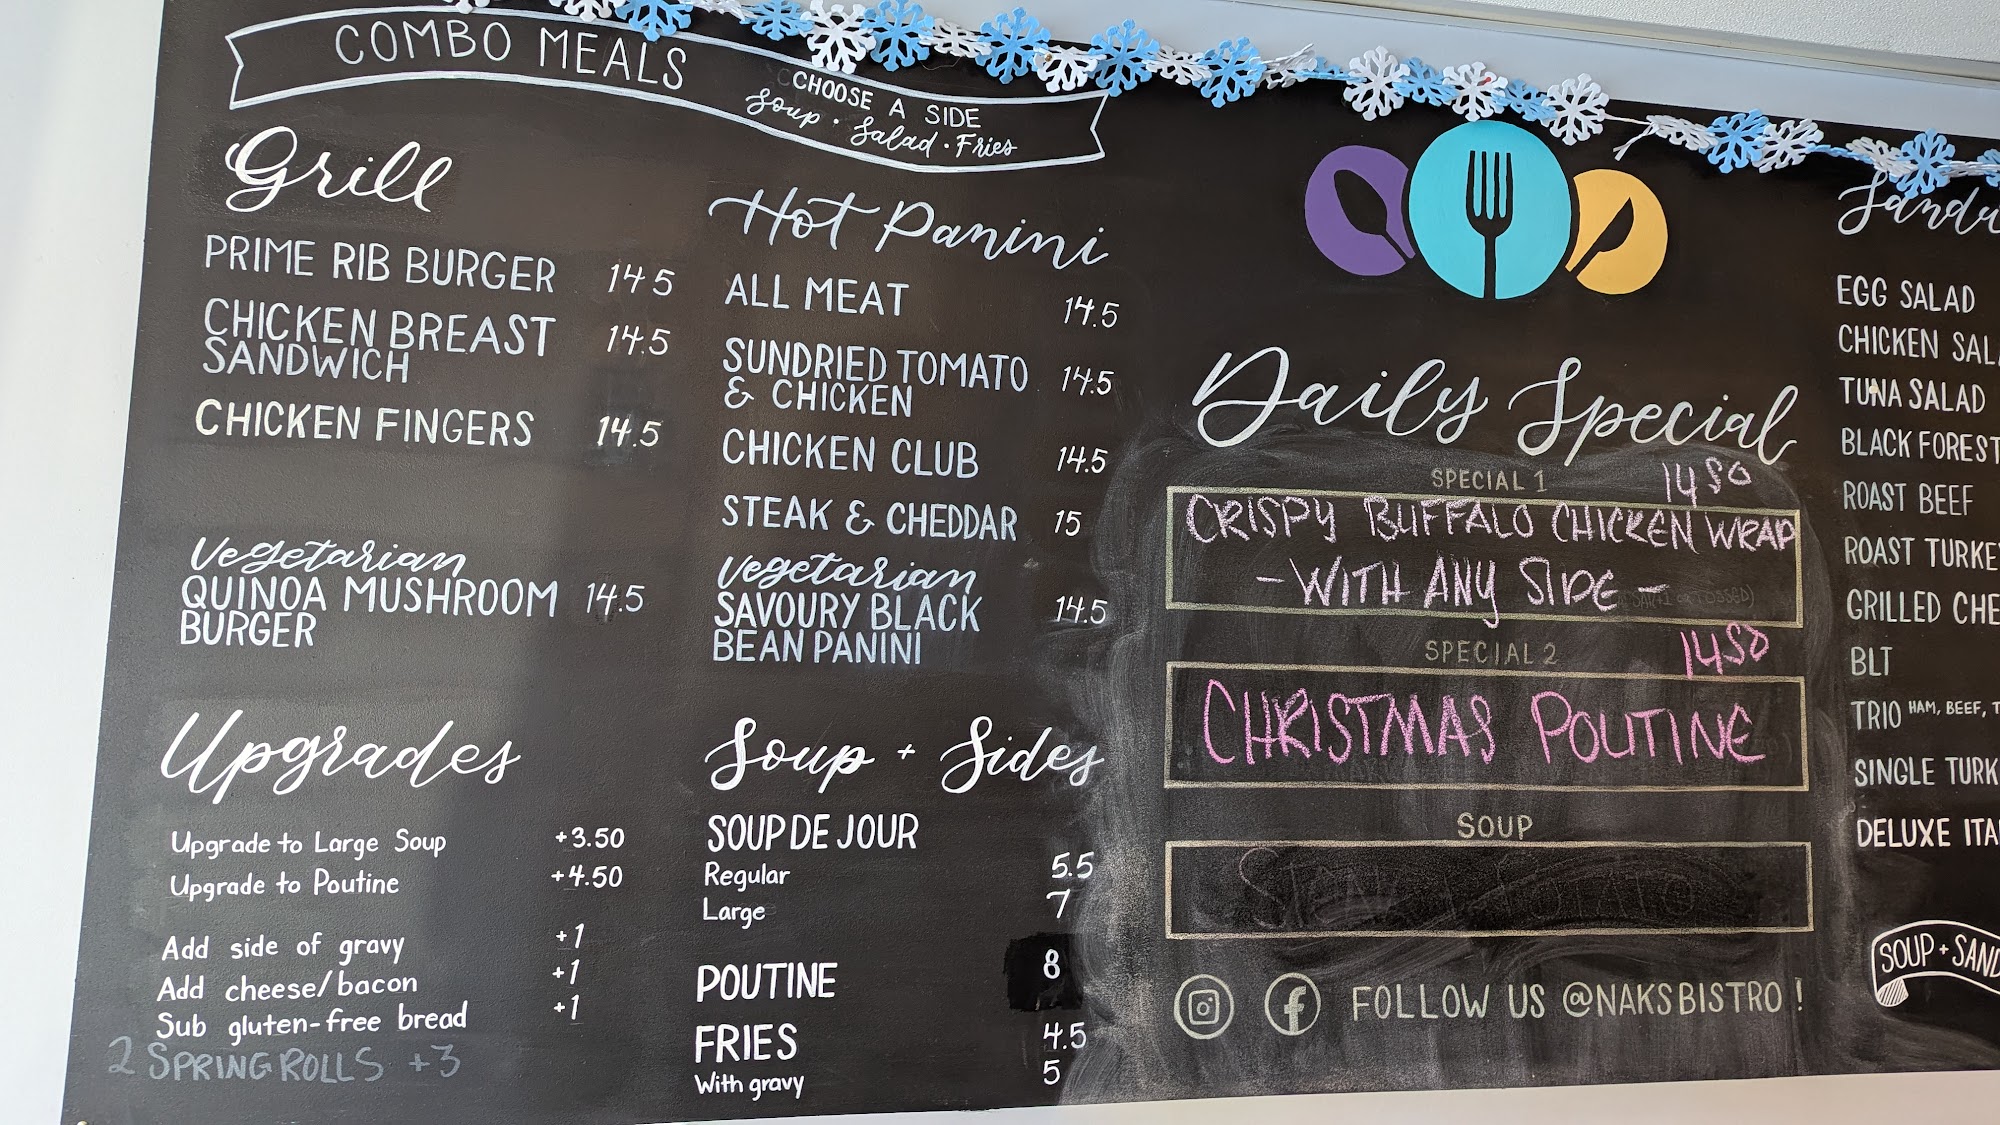 COMBO MEALS
CHOOSE A SIDE
Soup · Salad · Fries
Grill
PRIME RIB BURGER 14 5
CHICKEN BREAST 14.5
SANDWICH
CHICKEN FINGERS 14.5
Vegetarian
QUINOA MUSHROOM 14.5
BURGER
Upgrades
Upgrade to Large Soup +3.50
Upgrade to Poutine +4.50
Add side of gravy +1
Add cheese/bacon +1
Sub gluten-free bread +1
2 SPRING ROLLS +3
Hot Panini
ALL MEAT 14.5
SUNDRIED TOMATO 14.5
& CHICKEN
CHICKEN CLUB 14.5
STEAK & CHEDDAR 15
Vegetarian
SAVOURY BLACK 14.5
BEAN PANINI
Soup + Sides
SOUP DE JOUR
Regular 5.5
Large 7
POUTINE 8
FRIES 4.5
With gravy 5
Daily Special
SPECIAL 1 14 50
CRISPY BUFFALO CHICKEN WRAP
- WITH ANY SIDE -
SPECIAL 2 14 50
CHRISTMAS POUTINE
SOUP
FOLLOW US @NAKSBISTRO !
EGG SALAD
CHICKEN
TUNA SALAD
BLACK FOREST
ROAST BEEF
ROAST
GRILLED
BLT
TRIO HAM, BEEF,
SINGLE
DELUXE
SOUP +